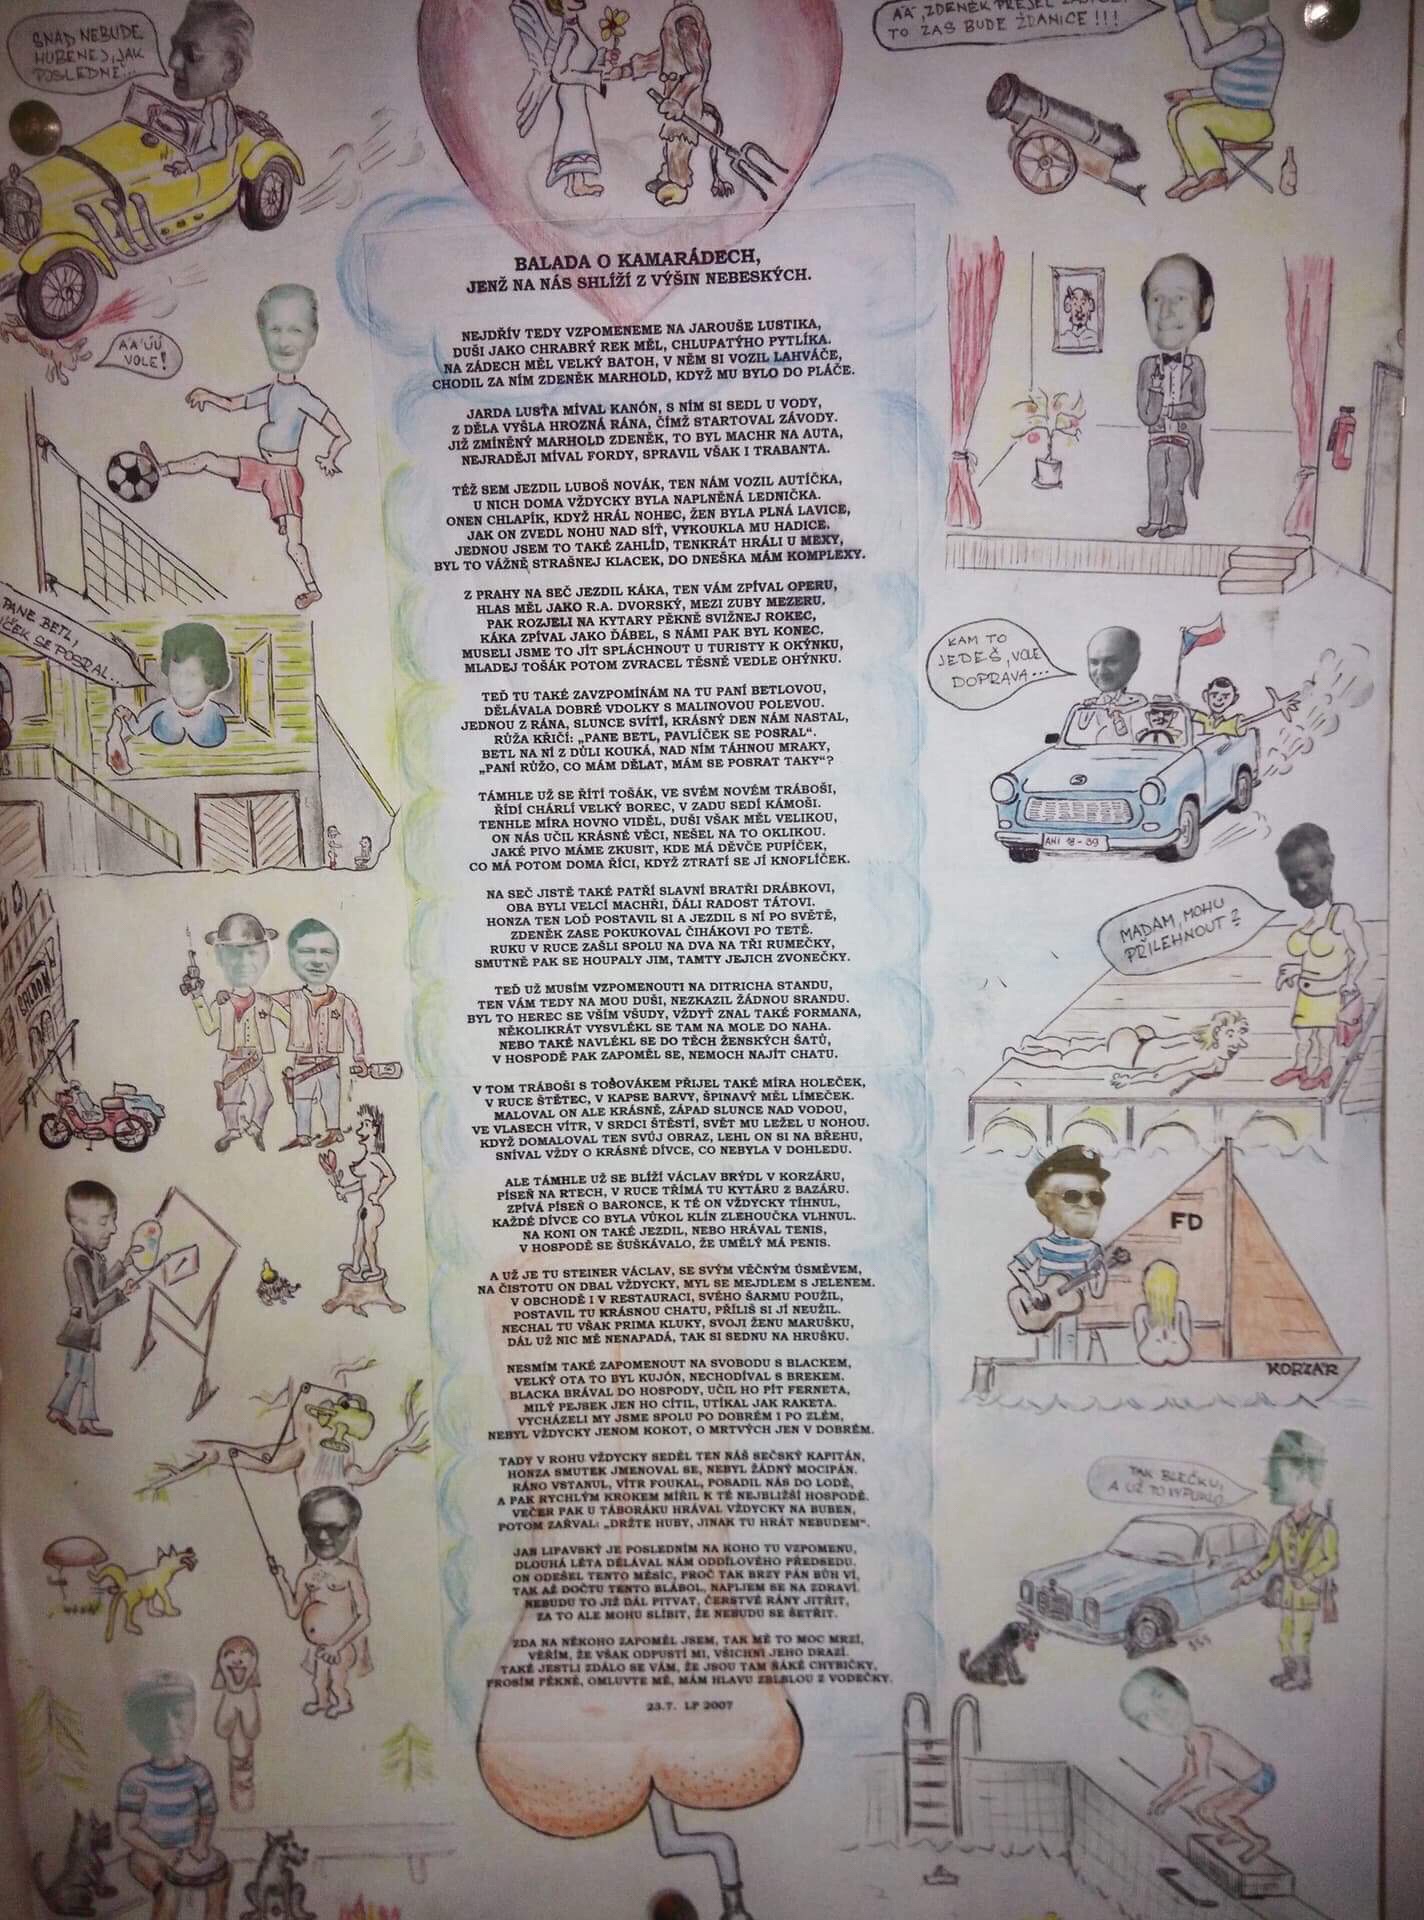 SNAD NEBUDE
HUBENEJ, JAK
POSLEDNĚ...
ÁÁ, ZDENĚK PŘEJEL
TO ZAS BUDE ŽDANICE!!!
BALADA O KAMARÁDECH,
JENŽ NA NÁS SHLÍŽÍ Z VÝŠIN NEBESKÝCH.
NEJDŘÍV TEDY VZPOMENEME NA JAROUŠE LUSTIKA,
DUŠI JAKO CHRABRÝ REK MĚL, CHLUPATÝHO PYTLÍKA.
NA ZÁDECH MĚL VELKÝ BATOH, V NĚM SI VOZIL LAHVÁČE,
CHODIL ZA NÍM ZDENĚK MARHOLD, KDYŽ MU BYLO DO PLÁČE.
JARDA LUSŤA MÍVAL KANÓN, S NÍM SI SEDL U VODY,
Z DĚLA VYŠLA HROZNÁ RÁNA, ČÍMŽ STARTOVAL ZÁVODY.
JIŽ ZMÍNĚNÝ MARHOLD ZDENĚK, TO BYL MACHR NA AUTA,
NEJRADĚJI MÍVAL FORDY, SPRAVIL VŠAK I TRABANTA.
TÉŽ SEM JEZDIL LUBOŠ NOVÁK, TEN NÁM VOZIL AUTÍČKA,
U NICH DOMA VŽDYCKY BYLA NAPLNĚNÁ LEDNIČKA.
ONEN CHLAPÍK, KDYŽ HRÁL NOHEC, ŽEN BYLA PLNÁ LAVICE,
JAK ON ZVEDL NOHU NAD SÍŤ, VYKOUKLA MU HADICE.
JEDNOU JSEM TO TAKÉ ZAHLÍD, TENKRÁT HRÁLI U MEXY,
BYL TO VÁŽNĚ STRAŠNEJ KLACEK, DO DNEŠKA MÁM KOMPLEXY.
Z PRAHY NA SEČ JEZDIL KÁKA, TEN VÁM ZPÍVAL OPERU,
HLAS MĚL JAKO R.A. DVORSKÝ, MEZI ZUBY MEZERU.
PAK ROZJELI NA KYTARY PĚKNĚ SVIŽNEJ ROKEC,
KÁKA ZPÍVAL JAKO ĎÁBEL, S NÁMI PAK BYL KONEC.
MUSELI JSME TO JÍT SPLÁCHNOUT U TURISTY K OKÝNKU,
MLADEJ TOŠÁK POTOM ZVRACEL TĚSNĚ VEDLE OHÝNKU.
TEĎ TU TAKÉ ZAVZPOMÍNÁM NA TU PANÍ BETLOVOU,
DĚLÁVALA DOBRÉ VDOLKY S MALINOVOU POLEVOU.
JEDNOU Z RÁNA, SLUNCE SVÍTÍ, KRÁSNÝ DEN NÁM NASTAL,
RŮŽA KŘIČÍ: „PANE BETL, PAVLÍČEK SE POSRAL“.
BETL NA NÍ Z DŮLI KOUKÁ, NAD NÍM TÁHNOU MRAKY,
„PANÍ RŮŽO, CO MÁM DĚLAT, MÁM SE POSRAT TAKY“?
TÁMHLE UŽ SE ŘÍTÍ TOŠÁK, VE SVÉM NOVÉM TRÁBOŠI,
ŘÍDÍ CHÁRLÍ VELKÝ BOREC, V ZADU SEDÍ KÁMOŠI.
TENHLE MÍRA HOVNO VIDĚL, DUŠI VŠAK MĚL VELIKOU,
ON NÁS UČIL KRÁSNÉ VĚCI, NEŠEL NA TO OKLIKOU.
JAKÉ PIVO MÁME ZKUSIT, KDE MÁ DĚVČE PUPÍČEK,
CO MÁ POTOM DOMA ŘÍCI, KDYŽ ZTRATÍ SE JÍ KNOFLÍČEK.
NA SEČ JISTĚ TAKÉ PATŘÍ SLAVNÍ BRATŘI DRÁBKOVI,
OBA BYLI VELCÍ MACHŘI, ĎÁLI RADOST TÁTOVI.
HONZA TEN LOĎ POSTAVIL SI A JEZDIL S NÍ PO SVĚTĚ,
ZDENĚK ZASE POKUKOVAL ČIHÁKOVI PO TETĚ.
RUKU V RUCE ZAŠLI SPOLU NA DVA NA TŘI RUMEČKY,
SMUTNĚ PAK SE HOUPALY JIM, TAMTY JEJICH ZVONEČKY.
TEĎ UŽ MUSÍM VZPOMENOUTI NA DITRICHA STANDU,
TEN VÁM TEDY NA MOU DUŠI, NEZKAZIL ŽÁDNOU SRANDU.
BYL TO HEREC SE VŠÍM VŠUDY, VŽDYŤ ZNAL TAKÉ FORMANA,
NĚKOLIKRÁT VYSVLÉKL SE TAM NA MOLE DO NAHA.
NEBO TAKÉ NAVLÉKL SE DO TĚCH ŽENSKÝCH ŠATŮ,
V HOSPODĚ PAK ZAPOMĚL SE, NEMOCH NAJÍT CHATU.
V TOM TRÁBOŠI S TOŠOVÁKEM PŘIJEL TAKÉ MÍRA HOLEČEK,
V RUCE ŠTĚTEC, V KAPSE BARVY, ŠPINAVÝ MĚL LÍMEČEK.
MALOVAL ON ALE KRÁSNĚ, ZÁPAD SLUNCE NAD VODOU,
VE VLASECH VÍTR, V SRDCI ŠTĚSTÍ, SVĚT MU LEŽEL U NOHOU.
KDYŽ DOMALOVAL TEN SVŮJ OBRAZ, LEHL ON SI NA BŘEHU,
SNÍVAL VŽDY O KRÁSNÉ DÍVCE, CO NEBYLA V DOHLEDU.
ALE TÁMHLE UŽ SE BLÍŽÍ VÁCLAV BRÝDL V KORZÁRU,
PÍSEŇ NA RTECH, V RUCE TŘÍMÁ TU KYTÁRU Z BAZÁRU.
ZPÍVÁ PÍSEŇ O BARONCE, K TÉ ON VŽDYCKY TÍHNUL,
KAŽDÉ DÍVCE CO BYLA VŮKOL KLÍN ZLEHOUČKA VLHNUL.
NA KONI ON TAKÉ JEZDIL, NEBO HRÁVAL TENIS,
V HOSPODĚ SE ŠUŠKÁVALO, ŽE UMĚLÝ MÁ PENIS.
A UŽ JE TU STEINER VÁCLAV, SE SVÝM VĚČNÝM ÚSMĚVEM,
NA ČISTOTU ON DBAL VŽDYCKY, MYL SE MEJDLEM S JELENEM.
V OBCHODĚ I V RESTAURACI, SVÉHO ŠARMU POUŽIL,
POSTAVIL TU KRÁSNOU CHATU, PŘÍLIŠ SI JÍ NEUŽIL.
NECHAL TU VŠAK PRIMA KLUKY, SVOJI ŽENU MARUŠKU,
DÁL UŽ NIC MĚ NENAPADÁ, TAK SI SEDNU NA HRUŠKU.
NESMÍM TAKÉ ZAPOMENOUT NA SVOBODU S BLACKEM,
VELKÝ OTA TO BYL KUJÓN, NECHODÍVAL S BREKEM.
BLACKA BRÁVAL DO HOSPODY, UČIL HO PÍT FERNETA,
MILÝ PEJSEK JEN HO CÍTIL, UTÍKAL JAK RAKETA.
VYCHÁZELI MY JSME SPOLU PO DOBRÉM I PO ZLÉM,
NEBYL VŽDYCKY JENOM KOKOT, O MRTVÝCH JEN V DOBRÉM.
TADY V ROHU VŽDYCKY SEDĚL TEN NÁŠ SEČSKÝ KAPITÁN,
HONZA SMUTEK JMENOVAL SE, NEBYL ŽÁDNÝ MOCIPÁN.
RÁNO VSTANUL, VÍTR FOUKAL, POSADIL NÁS DO LODĚ,
A PAK RYCHLÝM KROKEM MÍŘIL K TÉ NEJBLIŽŠÍ HOSPODĚ.
VEČER PAK U TÁBORÁKU HRÁVAL VŽDYCKY NA BUBEN,
POTOM ZAŘVAL: „DRŽTE HUBY, JINAK TU HRÁT NEBUDEM“.
JAN LIPAVSKÝ JE POSLEDNÍM NA KOHO TU VZPOMENU,
DLOUHÁ LÉTA DĚLÁVAL NÁM ODDÍLOVÉHO PŘEDSEDU.
ON ODEŠEL TENTO MĚSÍC, PROČ TAK BRZY PÁN BŮH VÍ,
TAK AŽ DOČTU TENTO BLÁBOL, NAPIJEM SE NA ZDRAVÍ.
NEBUDU TO JIŽ DÁL PITVAT, ČERSTVÉ RÁNY JITŘIT,
ZA TO ALE MOHU SLÍBIT, ŽE NEBUDU SE ŠETŘIT.
ZDA NA NĚKOHO ZAPOMĚL JSEM, TAK MĚ TO MOC MRZÍ,
VĚŘÍM, ŽE VŠAK ODPUSTÍ MI, VŠICHNI JEHO DRAZÍ.
TAKÉ JESTLI ZDÁLO SE VÁM, ŽE JSOU TAM ŇÁKÉ CHYBIČKY,
PROSÍM PĚKNĚ, OMLUVTE MĚ, MÁM HLAVU ZBLBLOU Z VODEČKY.
23.7. LP 2007
ÁÁ ÚÚ
VOLE!
PANE BETL,
ÍČEK SE POSRAL...
KAM TO
JEDEŠ, VOLE
DOPRAVA...
ANI 18-39
MADAM, MOHU
PŘILEHNOUT?
SALOON
FD
KORZÁR
TAK BLEČKU,
A UŽ TO VYPUKLO